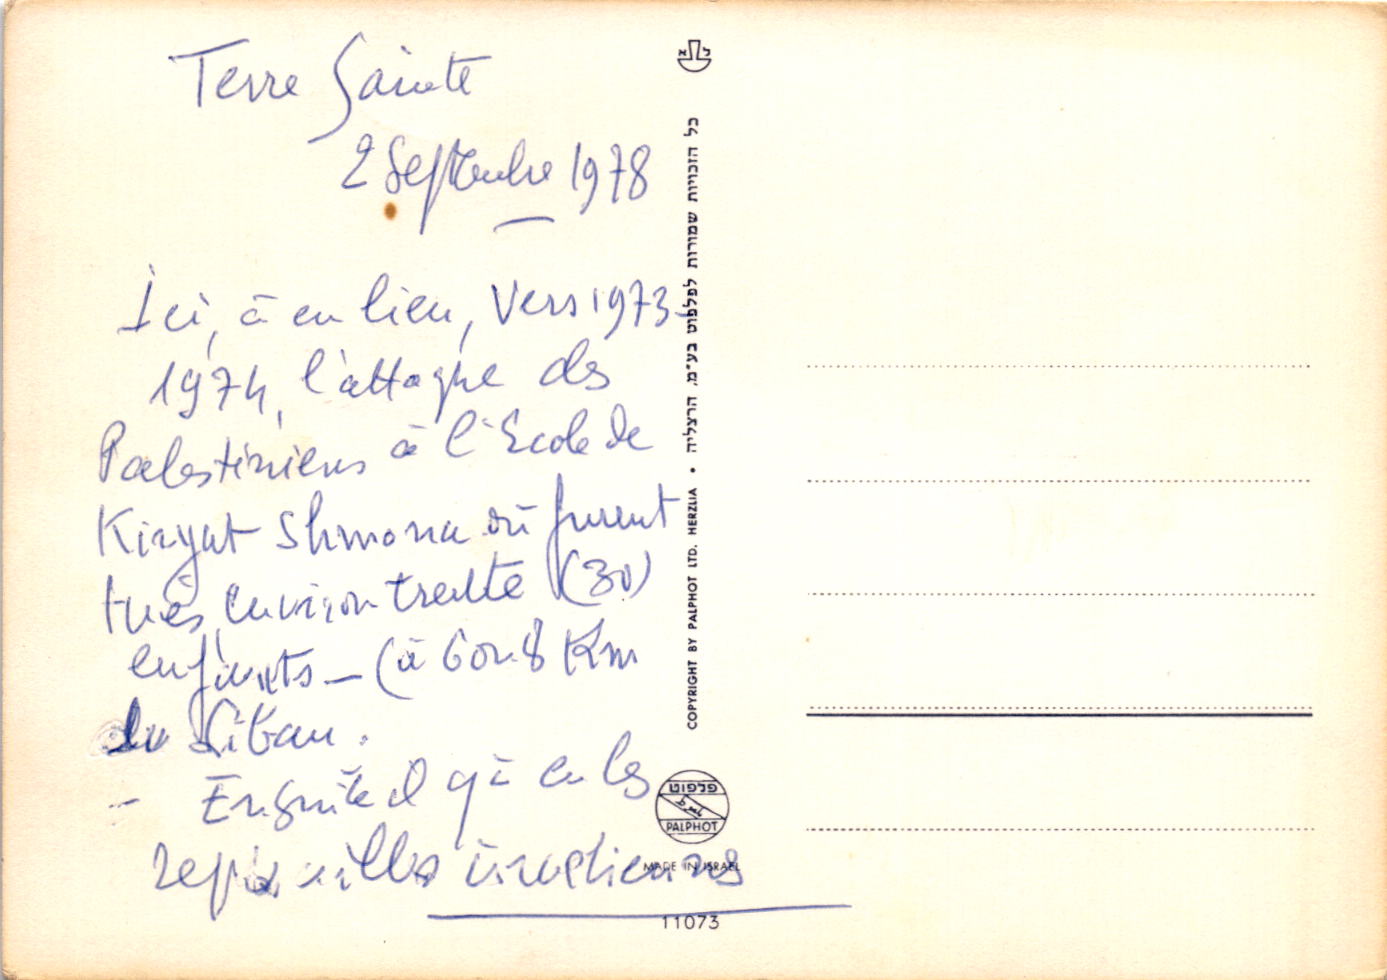 Terre Sainte
2 Septembre 1978
Ici, à eu lieu, Vers 1973-
1974, l'attaque des
Palestiniens à l'Ecole de
Kiryat Shmona où furent
tués, environ trente (30)
enfants – (à 6 ou 8 Km
du Liban.
– Ensuite il y à eu les
représailles israëliennes
א ל
כל הזכויות שמורות לפלפוט בע"מ, הרצליה • COPYRIGHT BY PALPHOT LTD. HERZLIA
פלפוט
PALPHOT
MADE IN ISRAEL
11073